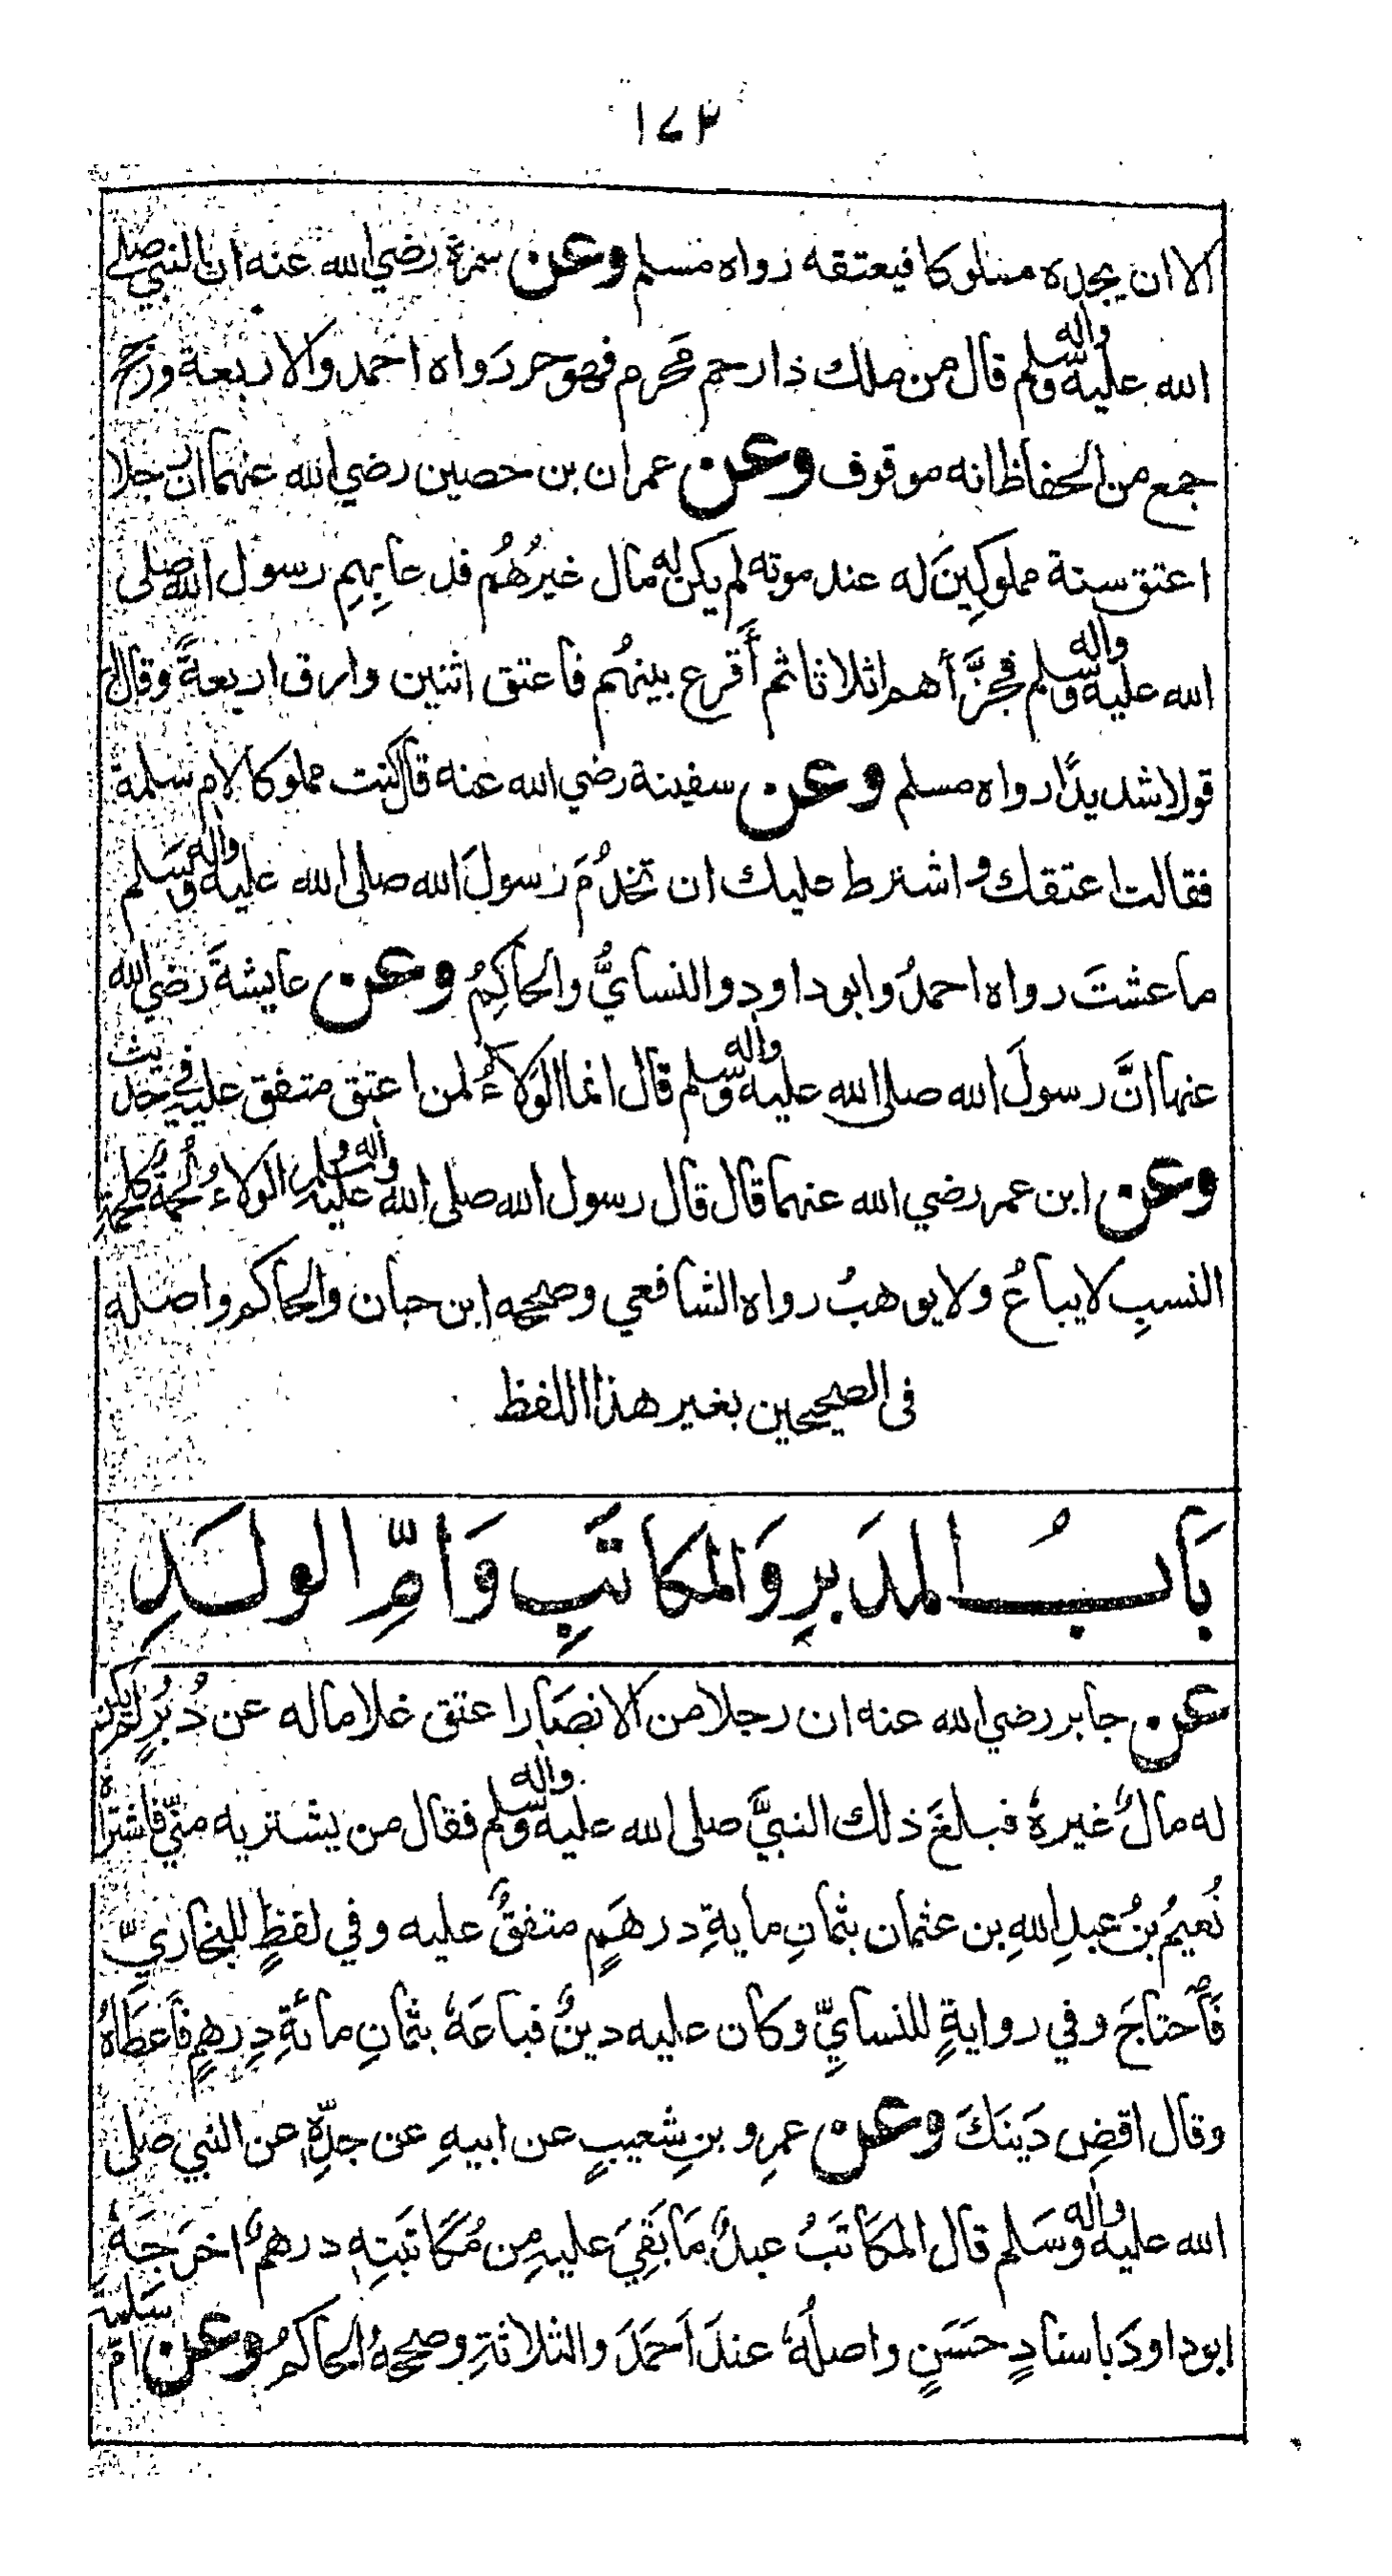 ١٧٣
الا ان يجده مملوكا فيعتقه رواه مسلم وعن سمرة رضي الله عنه ان النبي صلى
الله عليه واله وسلم قال من ملك ذا رحم مَحْرم فهو حر رَواه احمد والاربعة ورَجّح
جمع من الحفاظ انه موقوف وعن عمران بن حصين رضي الله عنهما ان رجلا
اعتق ستة مملوكِينَ له عند موته لم يكن له مال غيرُهُم فدعا بِهِم رسول الله صلى
الله عليه واله وسلم فجزَّأهم اثلاثا ثم أَقرع بينهُم فاعتق اثنين وارق اربعةً وقال له
قولا شديدًا رواه مسلم وعن سفينة رضي الله عنه قال كنت مملوكا لام سلمة
فقالت اعتقك واشترط عليك ان تخدُمَ رسولَ الله صلى الله عليه واله وسَلم
ما عشتَ رواه احمدُ وابو داود والنسايُّ والحاكِمُ وعن عايشةَ رَضي الله
عنها انَّ رسولَ الله صلى الله عليه واله وسلم قال انما الوَلاءُ لمن اعتق متفق عليهِ في حديث
وعن ابن عمر رضي الله عنهما قال قال رسول الله صلى الله عليهِ واله وسلم الوَلاءُ لُحمةٌ كلُحمةِ
النسبِ لا يباعُ ولا يوهبُ رواه الشافعي وصححه ابن حبان والحاكم واصله
فى الصحيحين بغير هذا اللفظ
بَابُ المدَبرِ وَالمكاتَبِ وَامِّ الولَدِ
عن جابر رضي الله عنه ان رجلا من الانصَار اعتق غلاما له عن دُبُرٍ لم يكن
له مالٌ غيرهُ فبلغَ ذلك النبيَّ صلى الله عليه واله وسلم فقال من يشتريه منّي فاشتراه
نُعيمُ بنُ عبدِ اللهِ بن عثمان بثمانِ مايةِ درهَمٍ متفقٌ عليه وفي لفظٍ للبخاريّ
فَاحتاجَ وفي روايةٍ للنسايِّ وكان عليه دينٌ فباعَهُ بثمانِ مائةِ دِرهمٍ فَاَعطَاهُ
وقال اقضِ دَينَكَ وعن عمرِو بنِ شعيبٍ عن ابيهِ عن جدِّهِ عن النبي صلى
الله عليه واله وسَلم قال المكَاتَبُ عبدٌ مَا بَقِيَ عليهِ مِن مُكَاتَبَتِهِ درهمٌ اخرَجَهُ
ابو داودَ باسنادٍ حَسَنٍ واصلُهُ عندَ اَحمَدَ والثلاثةِ وصححهُ الحاكمُ وعن امّ سَلمة